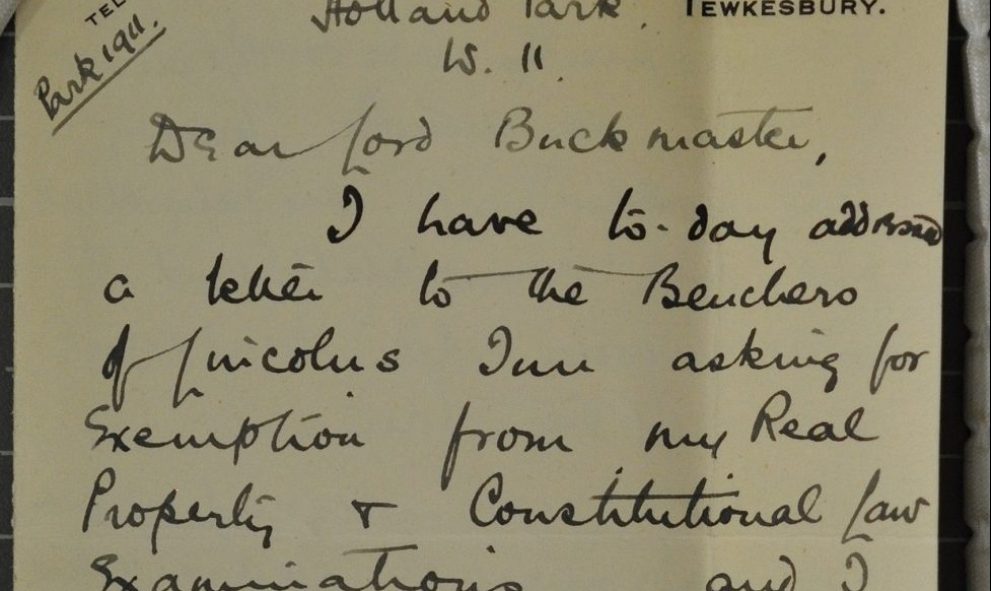 TEL
Park 1911.
Holland Park, TEWKESBURY.
W. 11.
Dear Lord Buckmaster,
I have to-day addressed
a letter to the Benchers
of Lincolns Inn asking for
Exemption from my Real
Property & Constitutional Law
Examinations and I